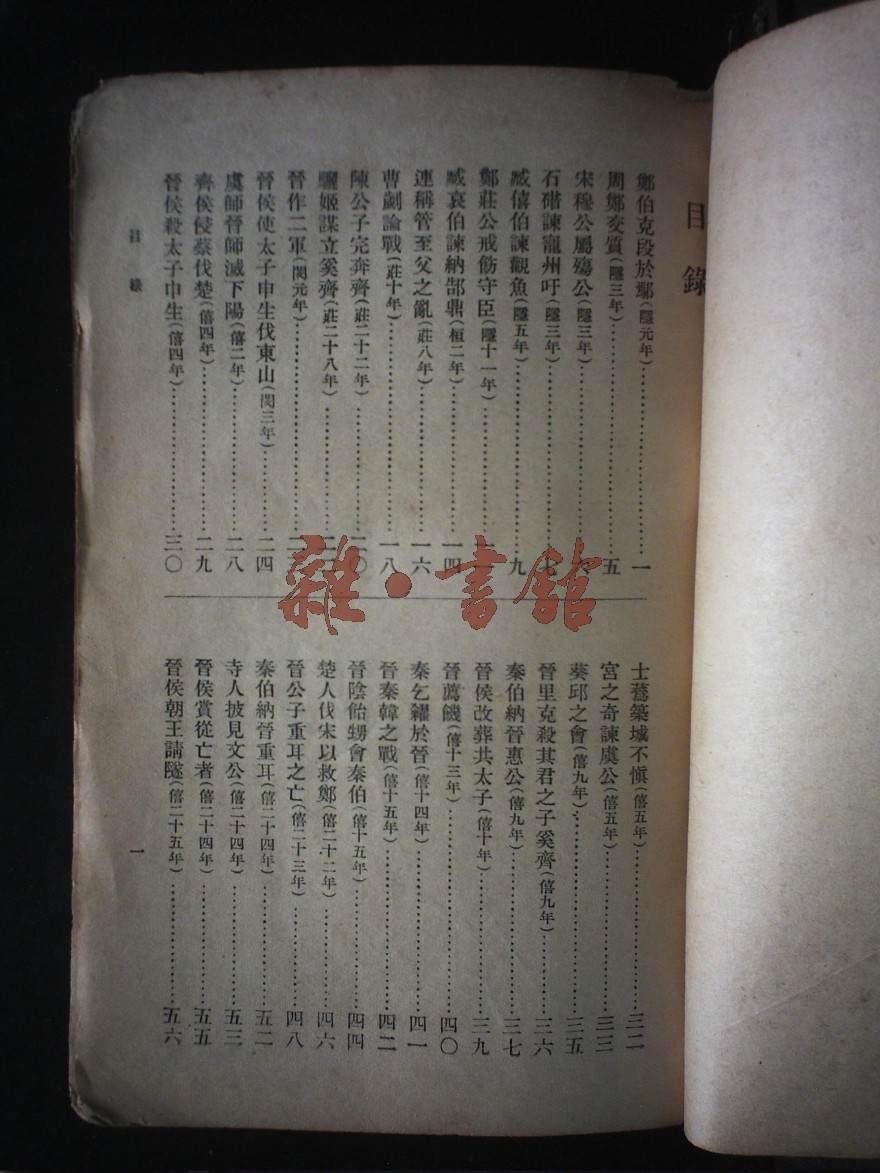 目錄
鄭伯克段於鄢(隱元年)⋯⋯一
周鄭交質(隱三年)⋯⋯五
宋穆公屬殤公(隱三年)⋯⋯
石碏諫寵州吁(隱三年)⋯⋯七
臧僖伯諫觀魚(隱五年)⋯⋯九
鄭莊公戒飭守臣(隱十一年)⋯⋯
臧哀伯諫納郜鼎(桓二年)⋯⋯一四
連稱管至父之亂(莊八年)⋯⋯一六
曹劌論戰(莊十年)⋯⋯一八
陳公子完奔齊(莊二十二年)⋯⋯二〇
驪姬謀立奚齊(莊二十八年)⋯⋯
晉作二軍(閔元年)⋯⋯
晉侯使太子申生伐東山(閔二年)⋯⋯二四
虞師晉師滅下陽(僖二年)⋯⋯二八
齊侯侵蔡伐楚(僖四年)⋯⋯二九
晉侯殺太子申生(僖四年)⋯⋯三〇
士蒍築城不愼(僖五年)⋯⋯三二
宮之奇諫虞公(僖五年)⋯⋯三三
葵邱之會(僖九年)⋯⋯三五
晉里克殺其君之子奚齊(僖九年)⋯⋯三六
秦伯納晉惠公(僖九年)⋯⋯三七
晉侯改葬共太子(僖十年)⋯⋯三九
晉薦饑(僖十三年)⋯⋯四〇
秦乞糴於晉(僖十四年)⋯⋯四一
晉秦韓之戰(僖十五年)⋯⋯四二
晉陰飴甥會秦伯(僖十五年)⋯⋯四四
楚人伐宋以救鄭(僖二十二年)⋯⋯四六
晉公子重耳之亡(僖二十三年)⋯⋯四八
秦伯納晉重耳(僖二十四年)⋯⋯五二
寺人披見文公(僖二十四年)⋯⋯五三
晉侯賞從亡者(僖二十四年)⋯⋯五五
晉侯朝王請隧(僖二十五年)⋯⋯五六
目錄
一
雜·書館